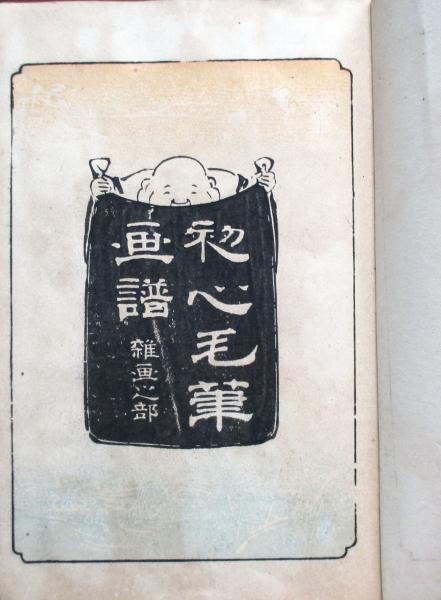 初心毛筆
画譜
雑画之部